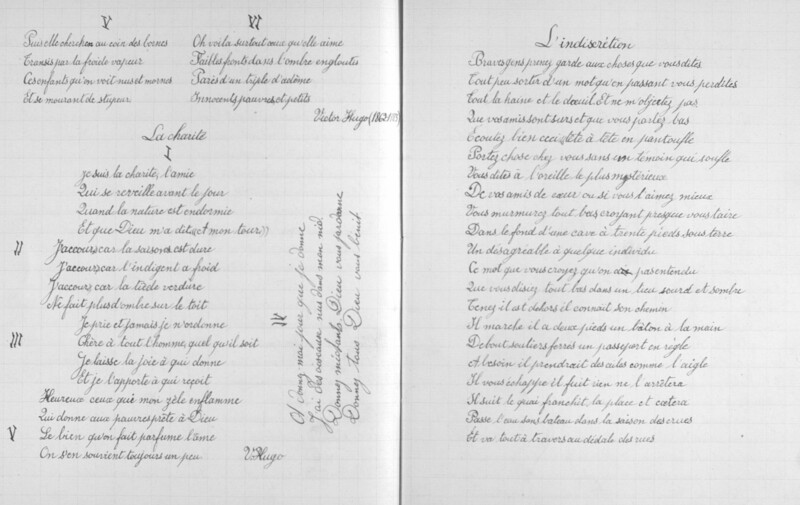 V
Puis elle cherche au coin des bornes
Transis par la froide vapeur
Ces enfants qu'on voit nus et mornes
Et se mourant de stupeur
VI
Oh voila surtout ceux qu'elle aime
Faibles fronts dans l'ombre engloutis
Parés d'un triple diadème
Innocents pauvres et petits
Victor Hugo (1802-1885)
La charité
I
Je suis la charité, l'amie
Qui se reveille avant le jour
Quand la nature est endormie
Et que Dieu m'a dit et mon tour))
II
J'accours car la saison est dure
J'accours car l'indigent a froid
J'accours car la tiède verdure
Ne fait plus d'ombre sur le toit
III
Je prie et jamais je n'ordonne
Chère à tout l'homme, quel qu'il soit
Je laisse la joie à qui donne
Et je l'apporte à qui reçoit
IV
O donnez moi pour que je donne
J'ai des oiseaux nus dans mon nid
Donnez méchants Dieu vous pardonne
Donnez tous Dieu vous bénit
V
Heureux ceux que mon zèle enflamme
Qui donne aux pauvres prête à Dieu
Le bien qu'on fait parfume l'âme
On s'en souvient toujours un peu
V.Hugo
L'indiscrétion
Braves gens prenez garde aux choses que vous dites
Tout peu sortir d'un mot qu'en passant vous perdites
Tout, la haine et le deuil Et ne m'objetez pas
Que vos amis sont surs et que vous parlez bas
Ecoutez bien ceci, tête à tête en pantoufle
Portes chose chez vous sans un témoin qui soufle
Vous dites à l'oreille le plus mystérieux
De vos amis de cœur ou si vous l'aimez mieux
Vous murmurez tout bas croyant presque vous taire
Dans le fond d'une cave à trente pieds sous terre
Un disagréable à quelque individu
Ce mot que vous croyez qu'on pas entendu
Que vous disiez tout bas dans un lieu sourd et sombre
Tenez il est dehors il connait son chemin
Il marche il a deux pieds un bâton à la main
De bout souliers ferrés un passeport en règle
A besoin il prendrait des ailes comme l'aigle
Il vous échappe il fuit rien ne l'arrêtera
Il suit le quai franchit, la place et cœtera
Passe l'eau sans bateau dans la saison des crues
Et va tout à travers au dédale des rues